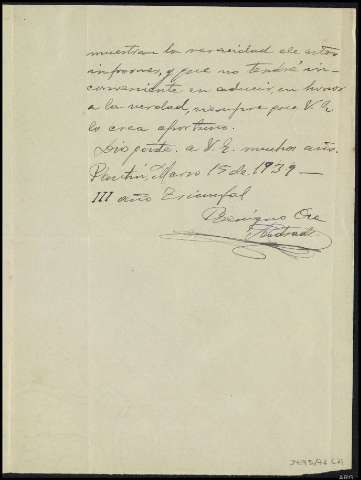 muestran la veracidad de estos
informes, y que no tendré in-
conveniente en aducir, en honor
a la verdad, siempre que V. E.
lo crea oportuno.
Dios gûrde. a V. E. muchos años.
Pantín, Marzo 15 de 1939 —
III año Triunfal
Benigno
Andrade